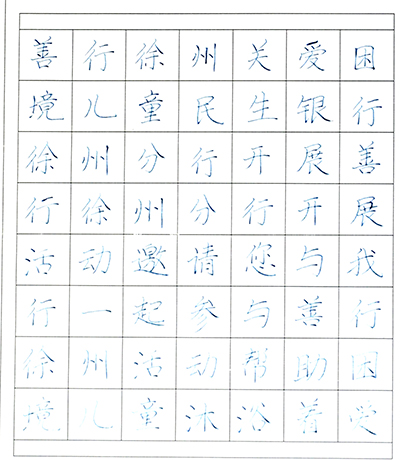 善行徐州关爱困
境儿童民生银行
徐州分行开展善
行徐州分行开展
活动邀请您与我
行一起参与善行
徐州活动帮助困
境儿童沐浴着爱